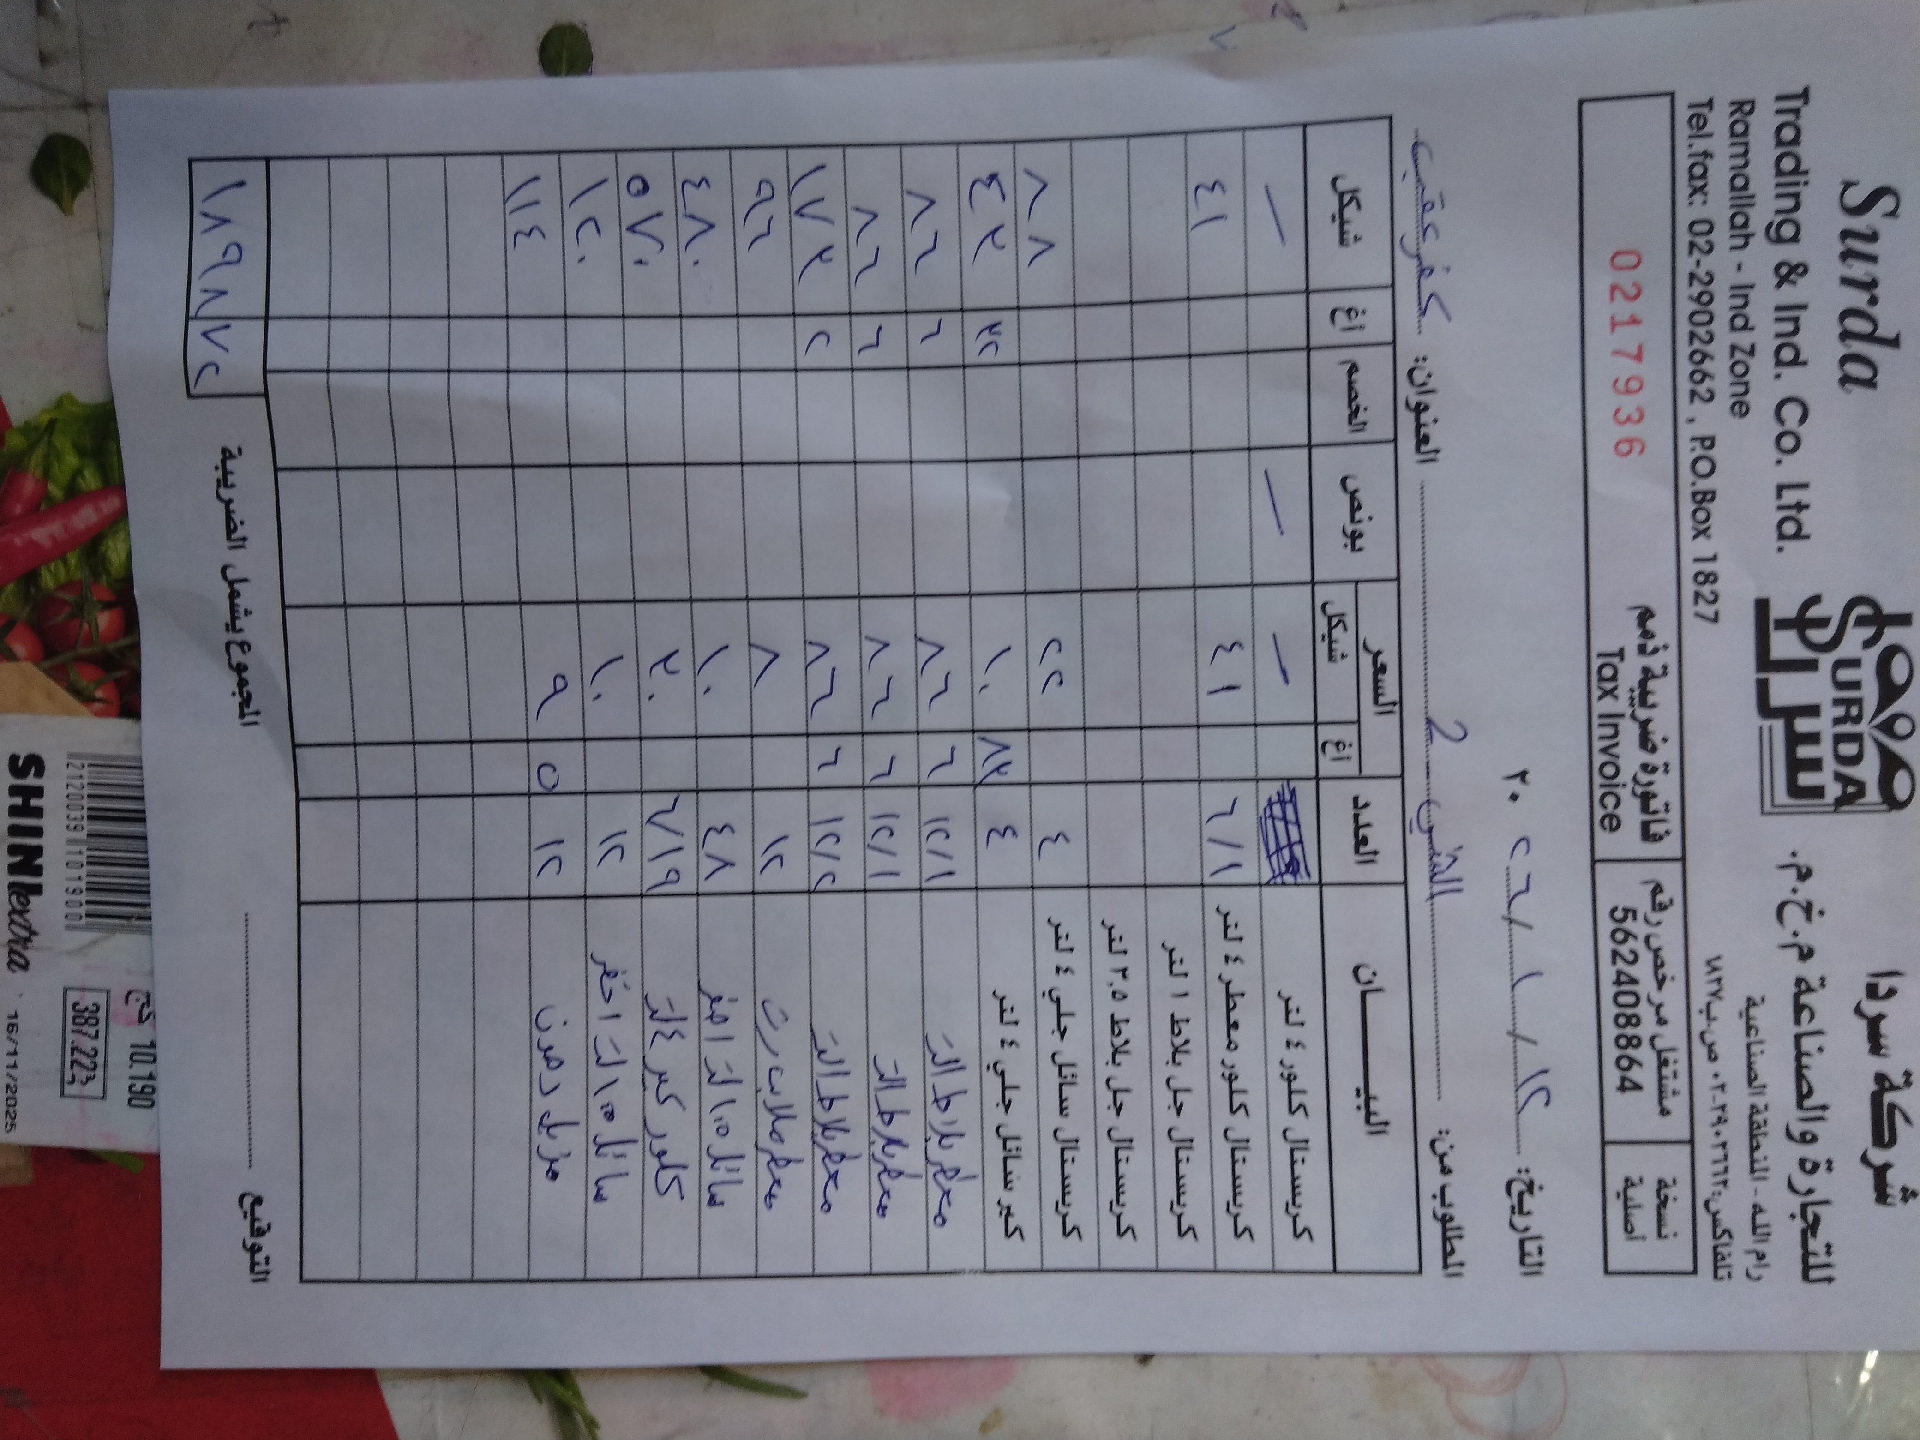 Surda
Trading & Ind. Co. Ltd.
Ramallah - Ind Zone
Tel.fax: 02-2902662 , P.O.Box 1827
SURDA
سردا
شركة سردا
للتجارة والصناعة م.خ.م.
رام الله - المنطقة الصناعية
تلفاكس: ٢٩٠٢٦٦٢-٠٢ ص.ب ١٨٢٧
0217936
فاتورة ضريبية ذمم
Tax Invoice
مشتغل مرخص رقم
562408864
نسخة
اصلية
التاريخ: ١٢ / ١ / ٢٠٢٦
المطلوب من:
العنوان: كفر عقب
البيــــان العدد السعر بونص الخصم اغ شيكل
اغ شيكل
كريستال كلور ٤ لتر — — —
كريستال كلور معطر ٤ لتر ٦/١ ٤١ ٤١
كريستال جل بلاط ١ لتر
كريستال جل بلاط ٣.٥ لتر
كريستال سائل جلي ٤ لتر ٤ ٢٢ ٨٨
كير سائل جلي ٤ لتر ٤ ٨٣ ١٠ ٣٢ ٤٣
معطر بلاط ١لتر ١٢/١ ٦ ٨٦ ٦ ٨٦
معطر بلاط ١لتر ١٢/١ ٦ ٨٦ ٦ ٨٦
معطر بلاط ١لتر ١٢/٢ ٦ ٨٦ ٢ ١٧٣
معطر ١٢ ٨ ٩٦
سائل ٤٨ ١٠ ٤٨٠
كلور كير ٤لتر ١٩ ٣٠ ٥٧٠
سائل ١٢ ١٠ ١٢٠
مزيل دهون ١٢ ٥ ٩ ١١٤
المجموع يشمل الضريبة ١٨٩٨٧٢
التوقيع
2120039101900
SHINextra
10.190
387.223
16/11/2025